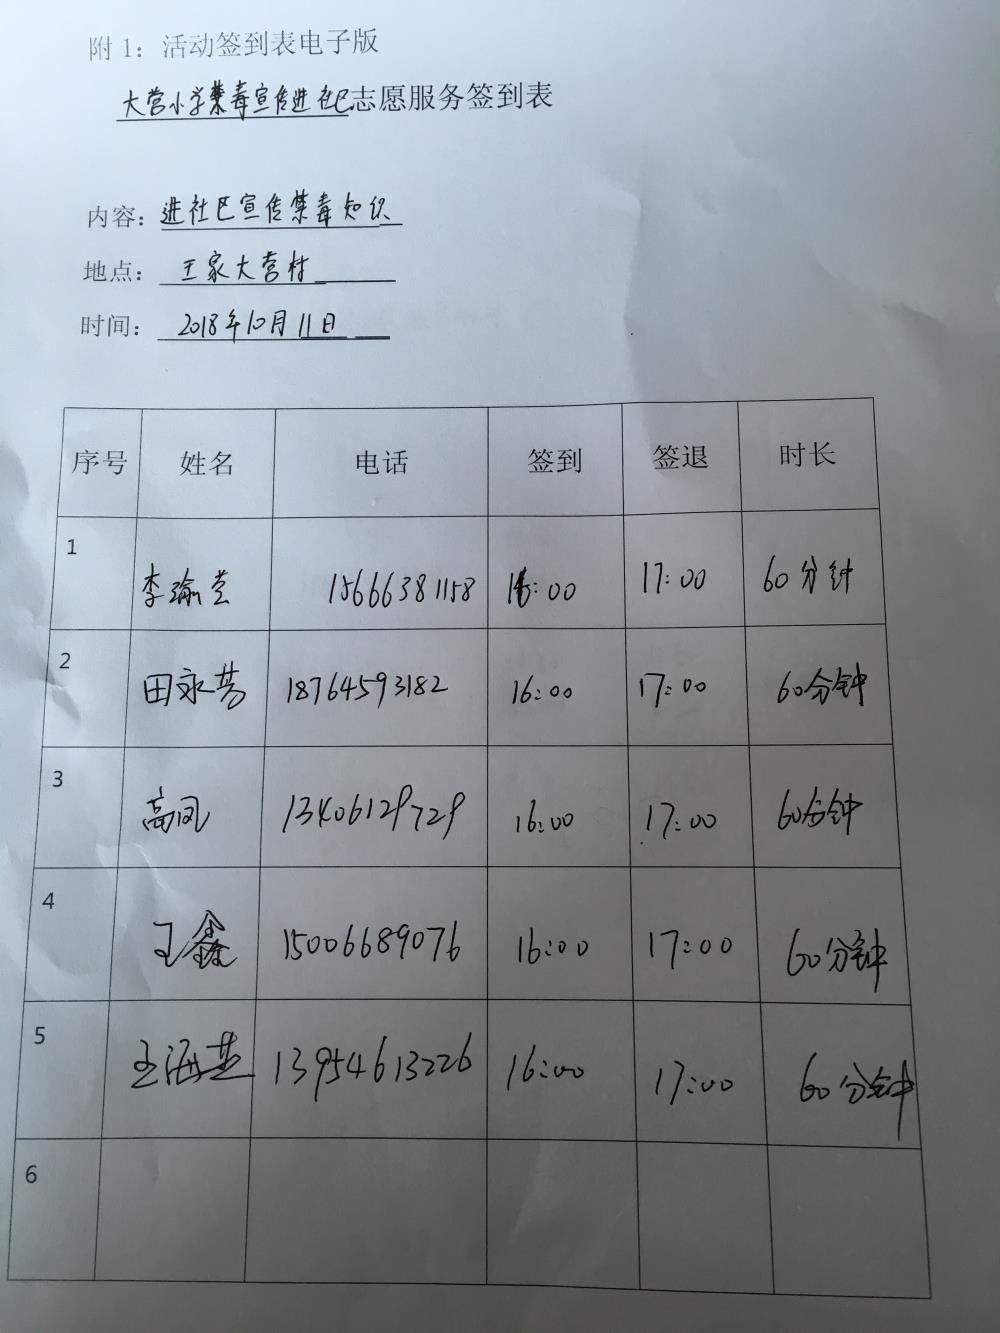 附 1：活动签到表电子版
大营小学禁毒宣传进社区志愿服务签到表
内容：进社区宣传禁毒知识
地点：王家大营村
时间：2018年10月11日
序号 姓名 电话 签到 签退 时长
1 李瑜莹 15666381158 16:00 17:00 60分钟
2 田永芳 18764593182 16:00 17:00 60分钟
3 高凤 13406129729 16:00 17:00 60分钟
4 王鑫 15006689076 16:00 17:00 60分钟
5 王海燕 13954613226 16:00 17:00 60分钟
6